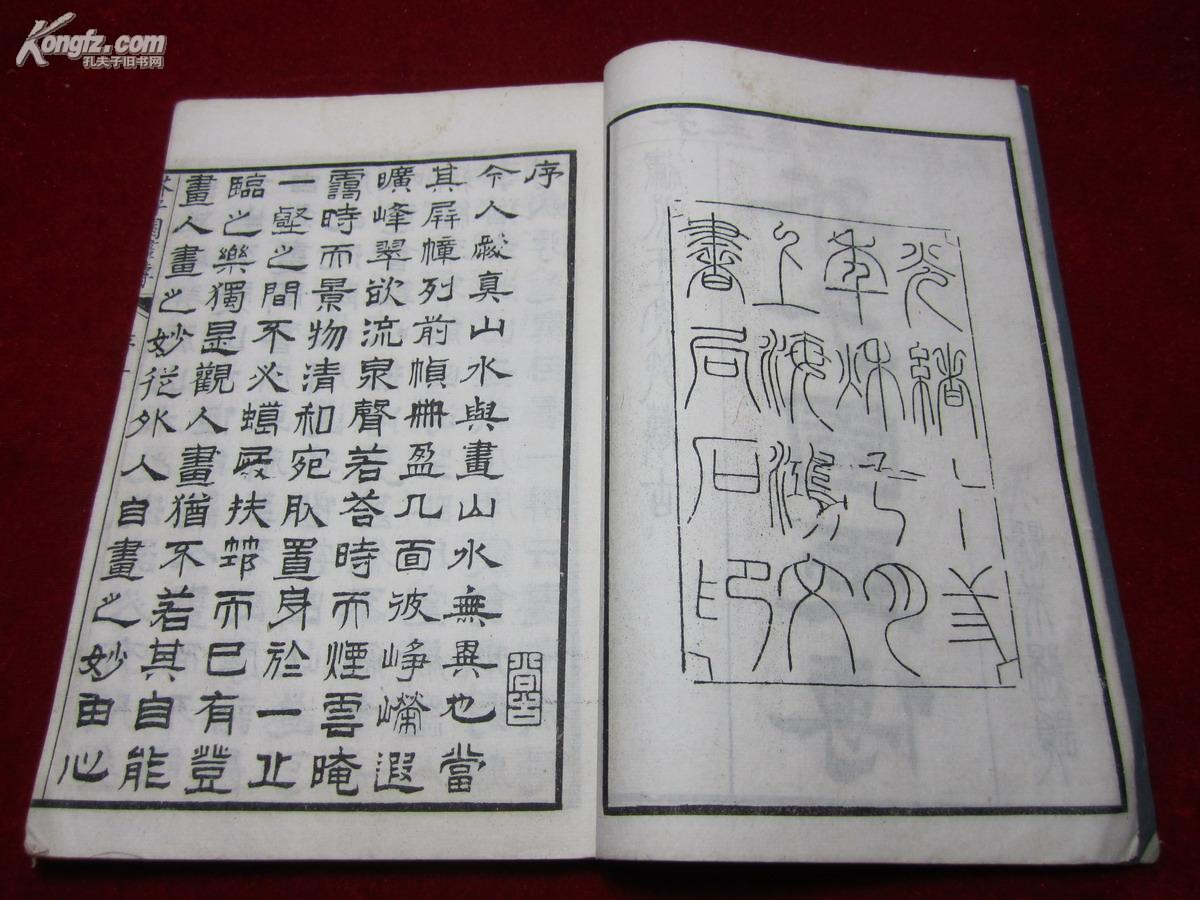 光緒
年秌月
上海鴻文
書局石印
序
今人愛真山水與畫山水無異也當
其屏幛列前幀冊盈几面彼崢嶸遐
曠峰翠欲流泉聲若荅時而煙雲晻
靄時而景物清和宛肰置身於一丘
一壑之間不必蠟屐扶筇而已有登
臨之樂獨是觀人畫猶不若其自能
畫人畫之妙從外入自畫之妙由心
Kongfz.com
孔夫子旧书网